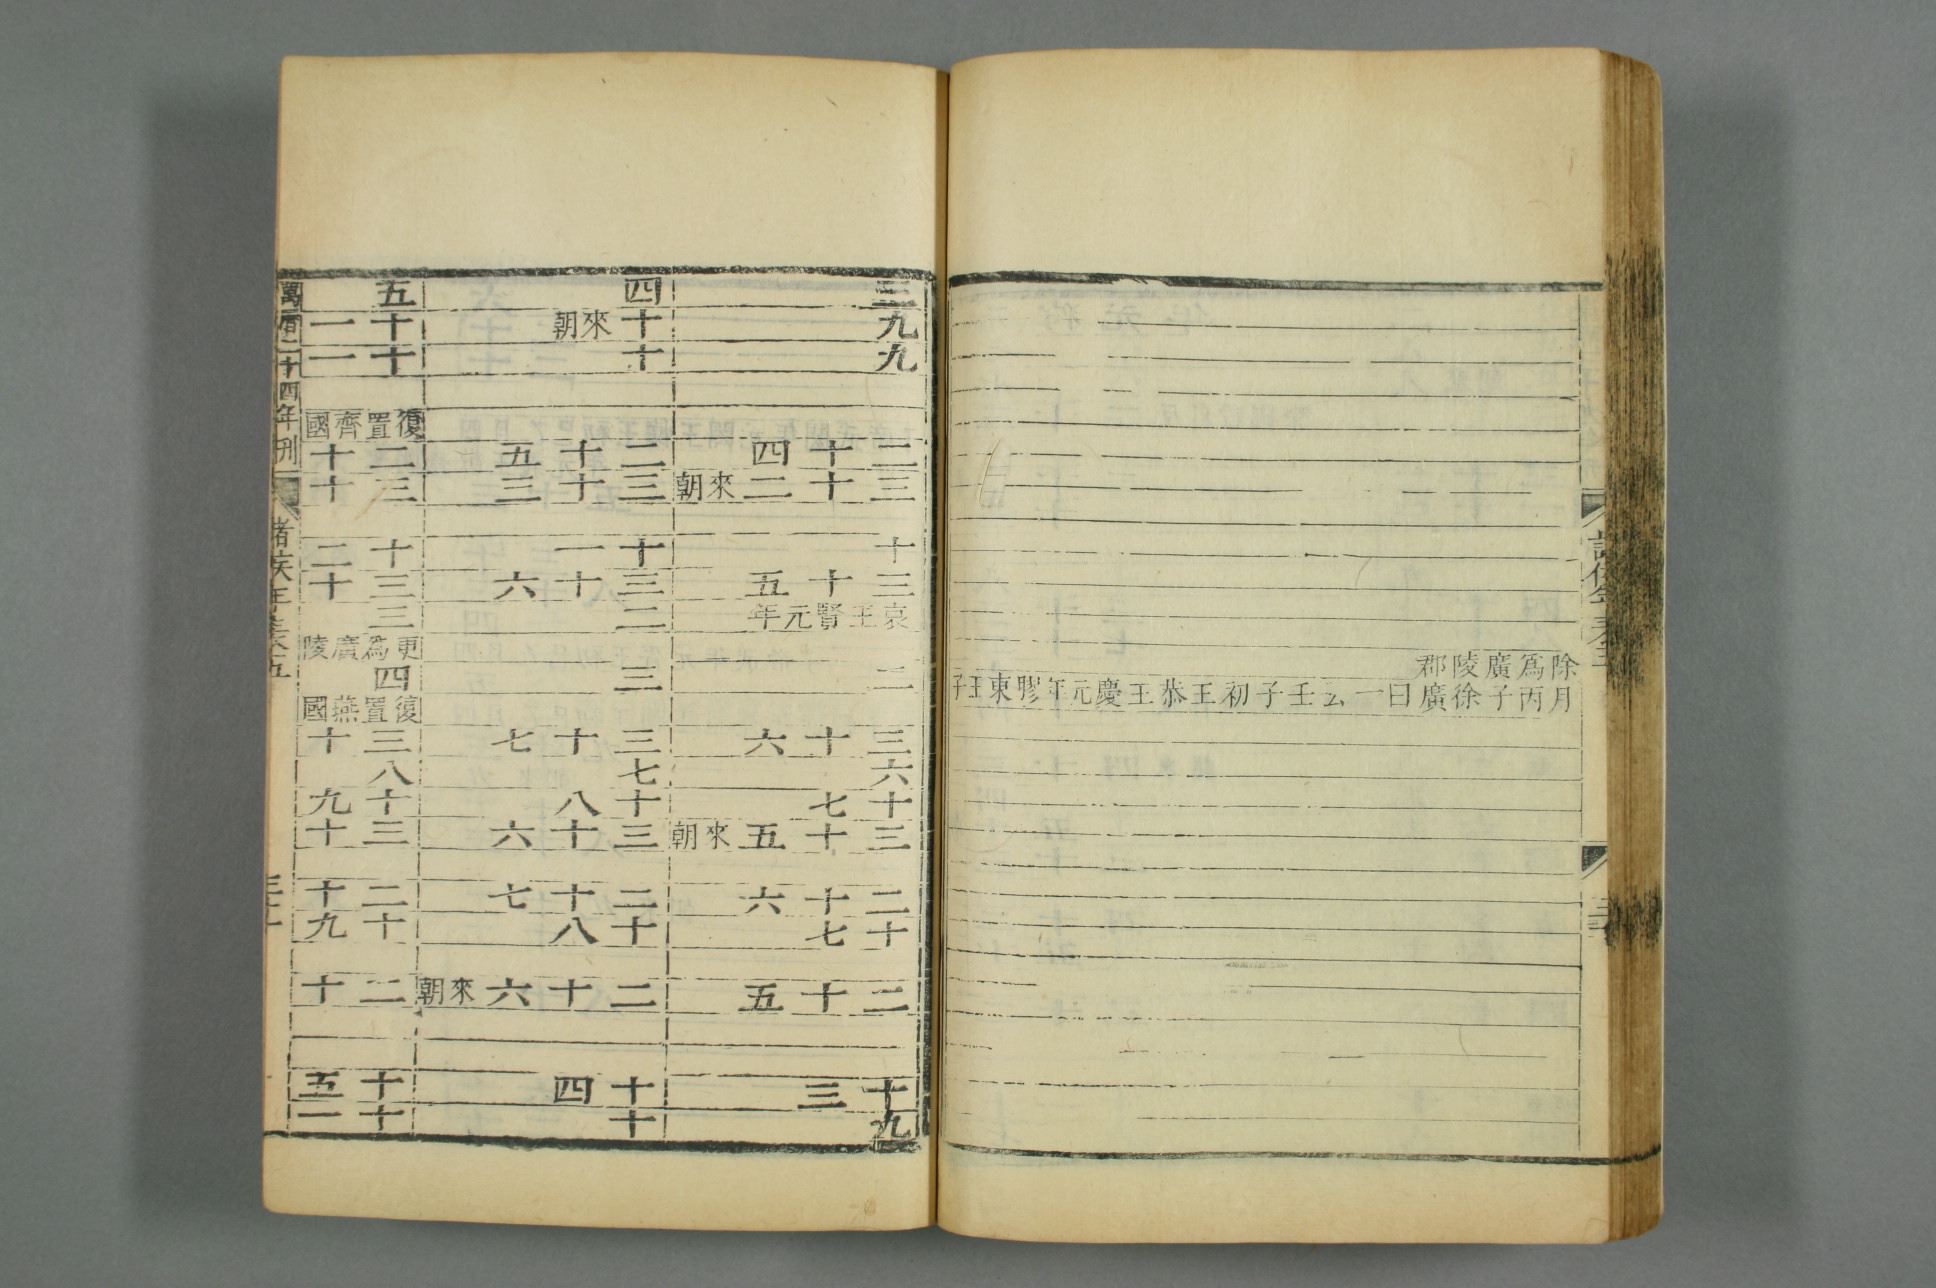 除爲廣陵郡
月丙子徐廣曰一云壬子初王恭王慶元年膠東王子
三
九
九
二十四
三十二來朝
十
三十五
哀王賢元年
二
三十六
六
十七
三十五來朝
二十六
十七
二十五
十三
九
四
十來朝
十
二十五
三十三
十一
三十六
二
三
三十七
七
十八
三十六
二十七
十八
二十六來朝
十四
十
五
十一
十一
復置齊國
二十
三十
十二
三十
三
更爲廣陵
四
復置燕國
三十
八
十九
三十
二十
十九
二十
十五
十一
萬曆二十四年刊
諸侯年表五